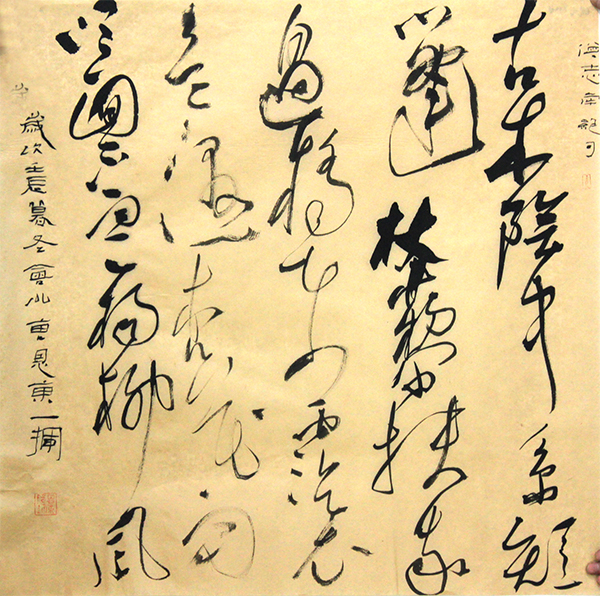 僧志南絶句
古木陰中系短
篷杖藜扶我
過橋東沾衣
欲濕杏花雨
吹面不寒楊柳風
歲次壬辰暮冬會